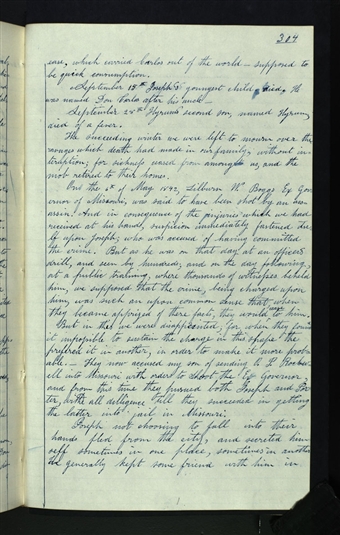 304
ease, which carried Carlos out of the world — supposed to
be quick consumption.
September 15th Joseph's youngest child died, He
was named Don Carlos after his uncle —
September 28th Hyrum's second son, named Hyrum,
died of a fever.
The succeeding winter we were left to mourn over the
ravages which death had made in our family, without in-
terruption; for sickness ceased from among us, and the
mob retired to their homes.
On the 6th of May 1842, Lilburn W. Boggs Ex Gov-
ernor of Missouri, was said to have been shot by an as-
sassin. And in consequence of the injuries which we had
received at his hands, suspicion immediately fastened its-
elf upon Joseph; who was accused of having committed
the crime. But as he was on that day at an officers
drill, and seen by hundreds; and on the day following,
at a public training, where thousands of witnesses beheld
him, we supposed that the crime, being charged upon
him, was such an upon common sense that, when
they became apprised of these facts, they would to him.
But in this we were disappointed, for when they found
it impossible to sustain the charge in this shape, the
prefered it in another, in order to make it more prob-
able. — They now accused my son of sending O. P. Rockw-
ell into Missouri with orders to shoot the Ex Governor;
and from this time they pursued both Joseph and Por-
ter, with all dilligence till they succeeded in getting
the latter into jail in Missouri.
Joseph not choosing to fall into their
hands fled from the city, and secreted him-
self sometimes in one place, sometimes in another
He generally kept some friend with him in